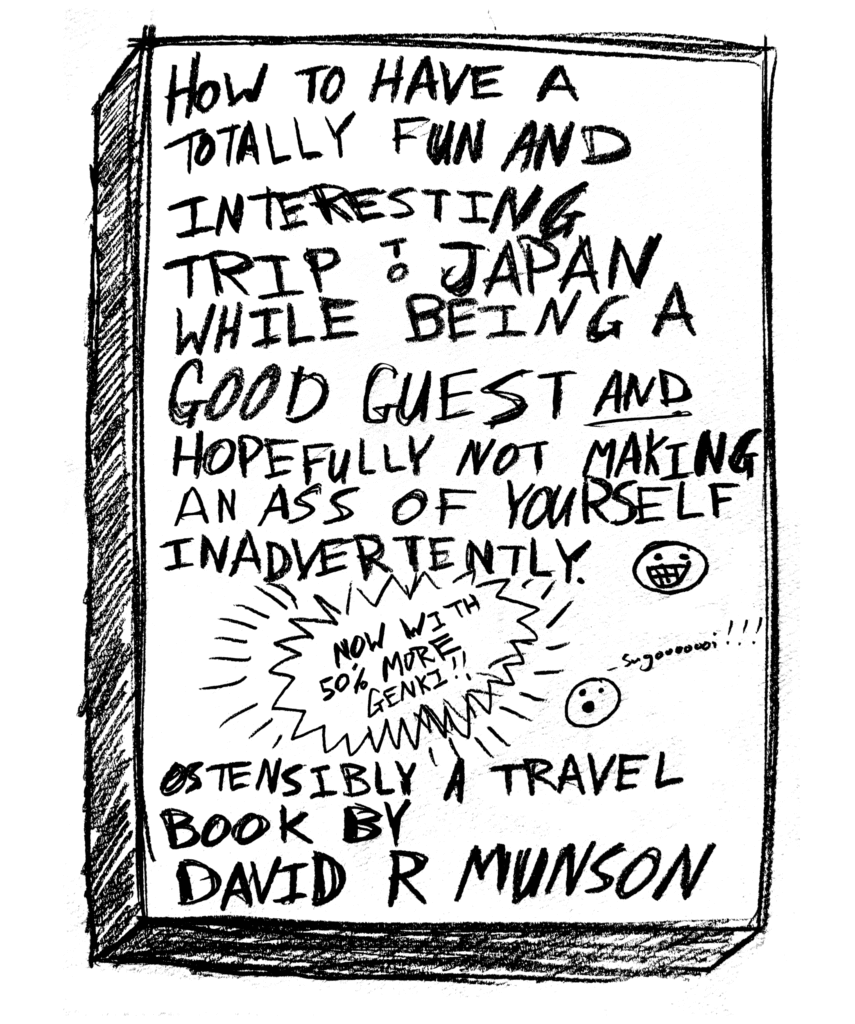 HOW TO HAVE A
TOTALLY FUN AND
INTERESTING
TRIP TO JAPAN
WHILE BEING A
GOOD GUEST AND
HOPEFULLY NOT MAKING
AN ASS OF YOURSELF
INADVERTENTLY.
NOW WITH
50% MORE
GENKI!!
sugooooooi!!!
OSTENSIBLY A TRAVEL
BOOK BY
DAVID R MUNSON